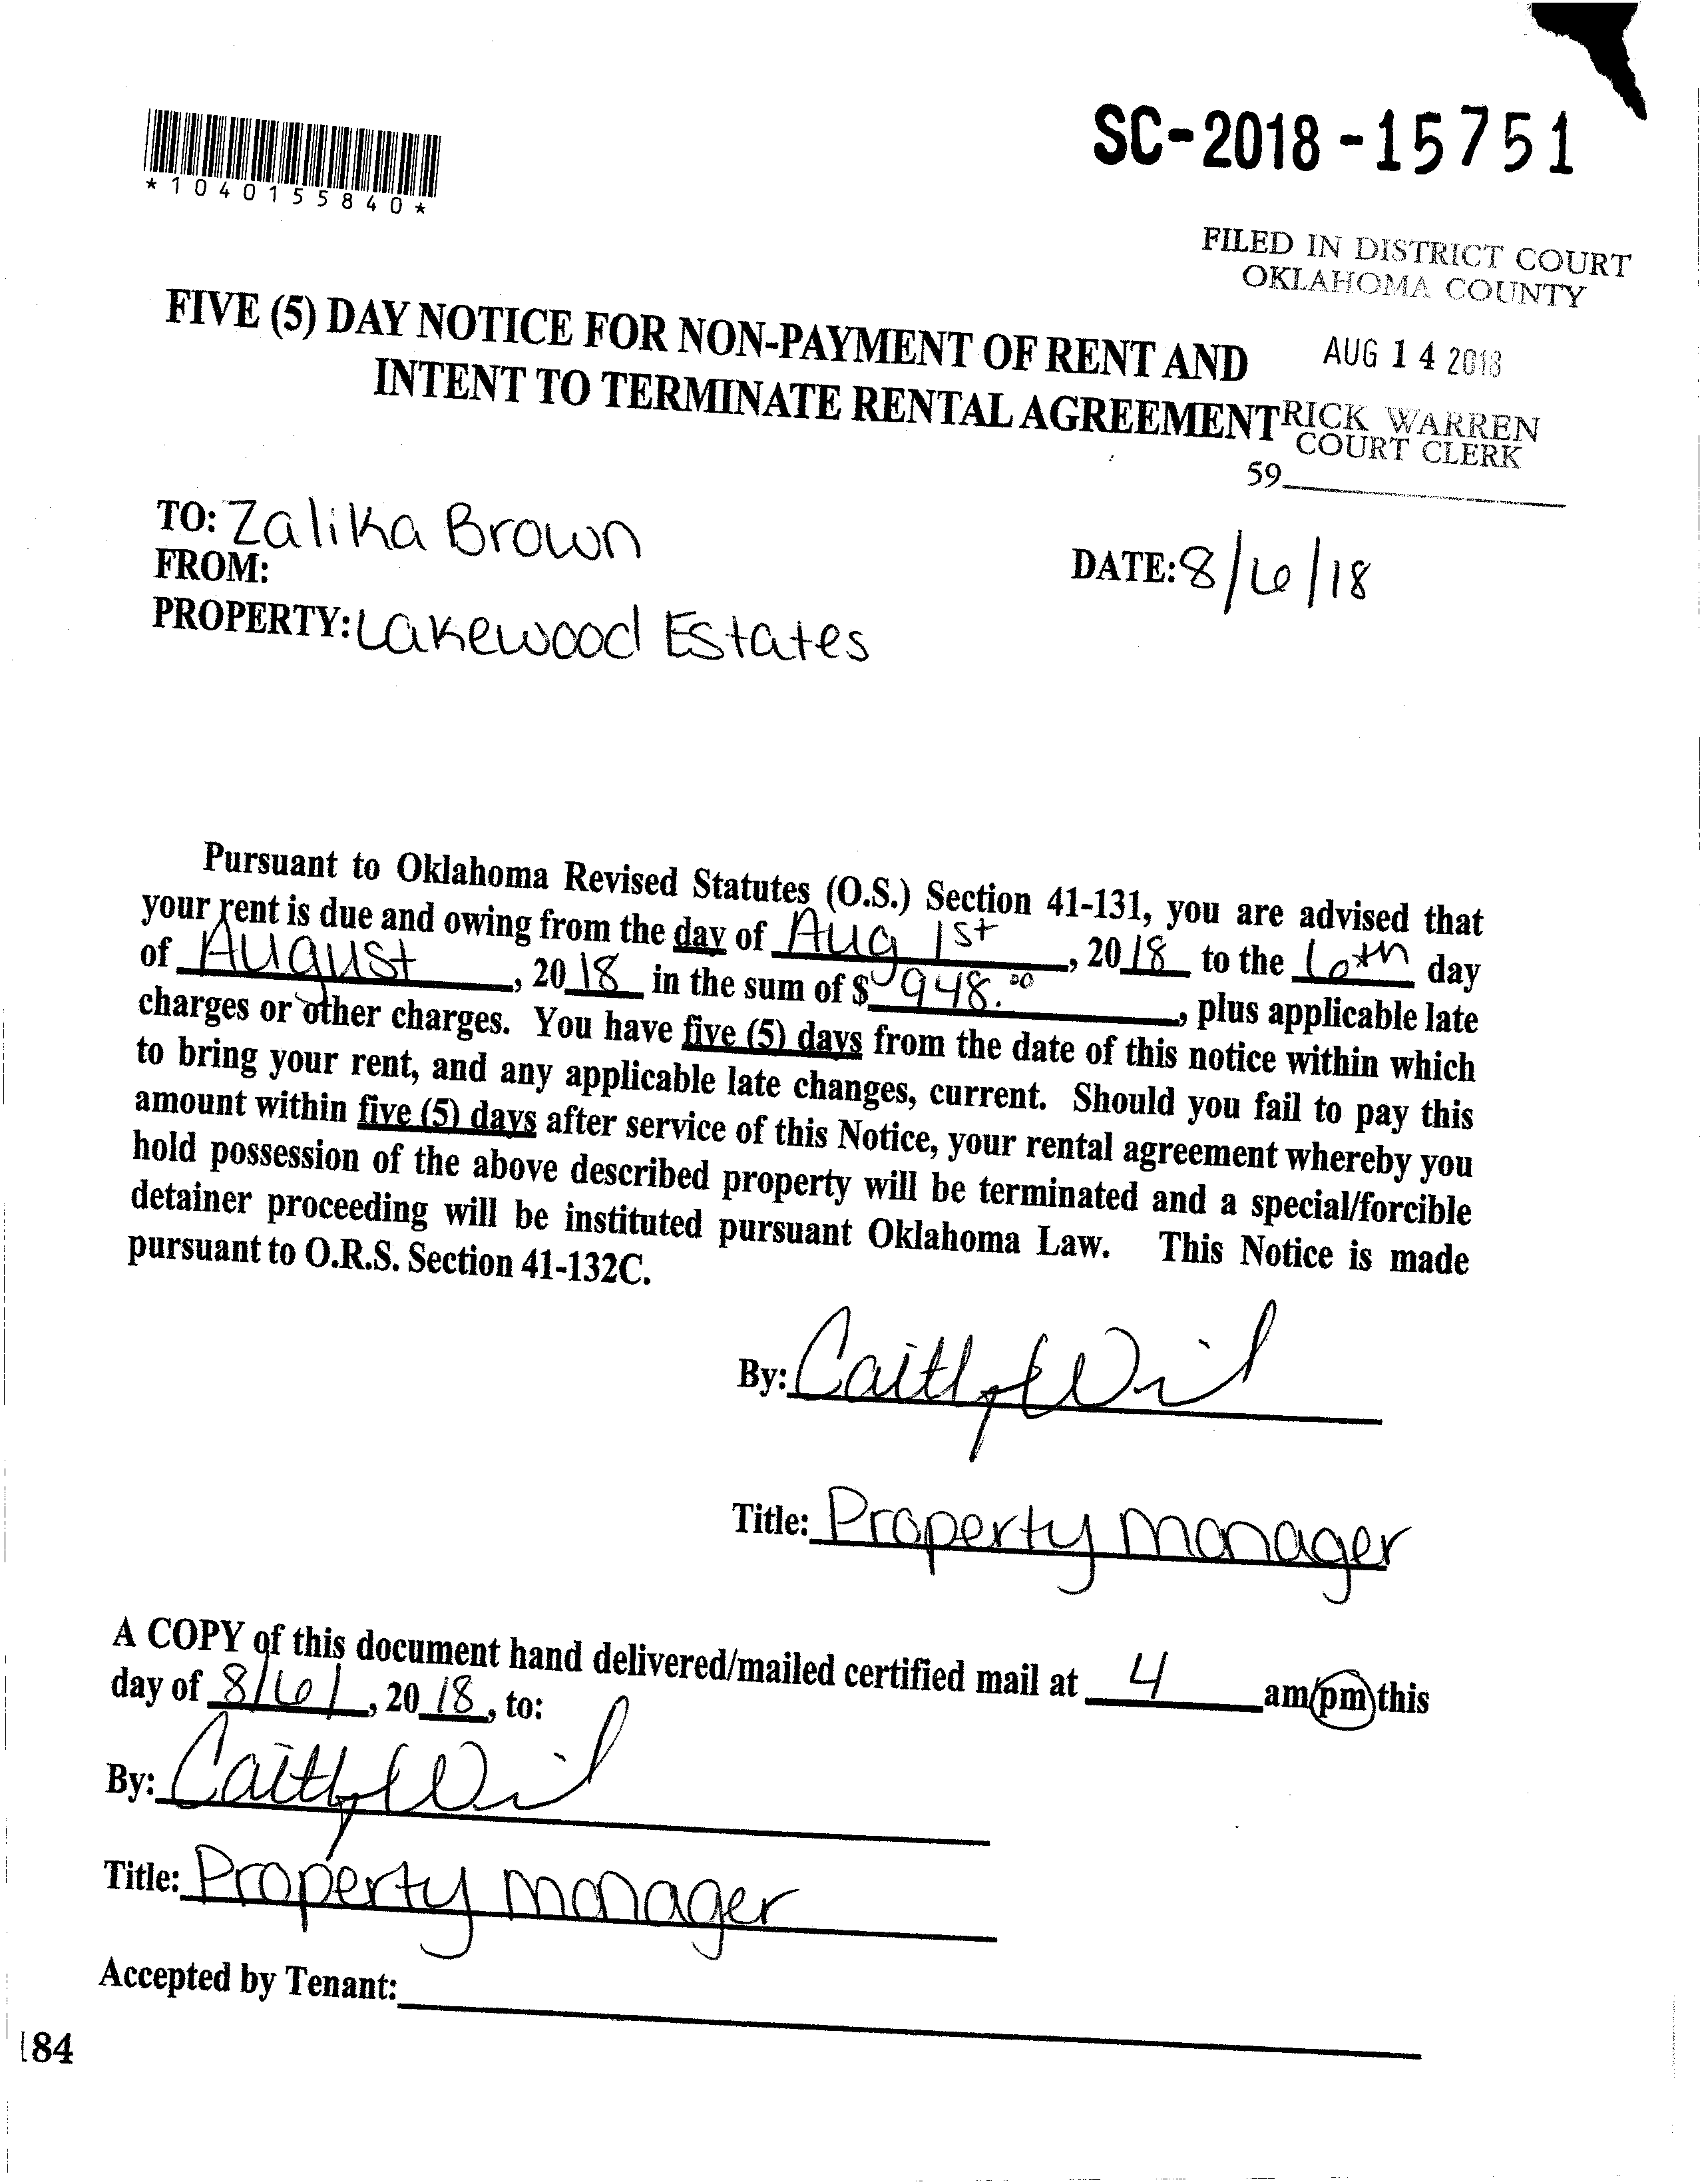 SC-2018-15751
*1040155840*
FILED IN DISTRICT COURT
OKLAHOMA COUNTY
FIVE (5) DAY NOTICE FOR NON-PAYMENT OF RENT AND
AUG 14 2018
INTENT TO TERMINATE RENTAL AGREEMENT
RICK WARREN
COURT CLERK
59
TO: Zalika Brown
FROM:
DATE: 8/6/18
PROPERTY: Lakewood Estates
Pursuant to Oklahoma Revised Statutes (O.S.) Section 41-131, you are advised that
your rent is due and owing from the day of Aug 1st, 2018 to the 6th day
of August, 2018 in the sum of $ 948.00, plus applicable late
charges or other charges. You have five (5) days from the date of this notice within which
to bring your rent, and any applicable late changes, current. Should you fail to pay this
amount within five (5) days after service of this Notice, your rental agreement whereby you
hold possession of the above described property will be terminated and a special/forcible
detainer proceeding will be instituted pursuant Oklahoma Law. This Notice is made
pursuant to O.R.S. Section 41-132C.
By:
Title: Property Manager
A COPY of this document hand delivered/mailed certified mail at 4 am/pm this
day of 8/6/, 2018, to:
By:
Title: Property Manager
Accepted by Tenant:
184